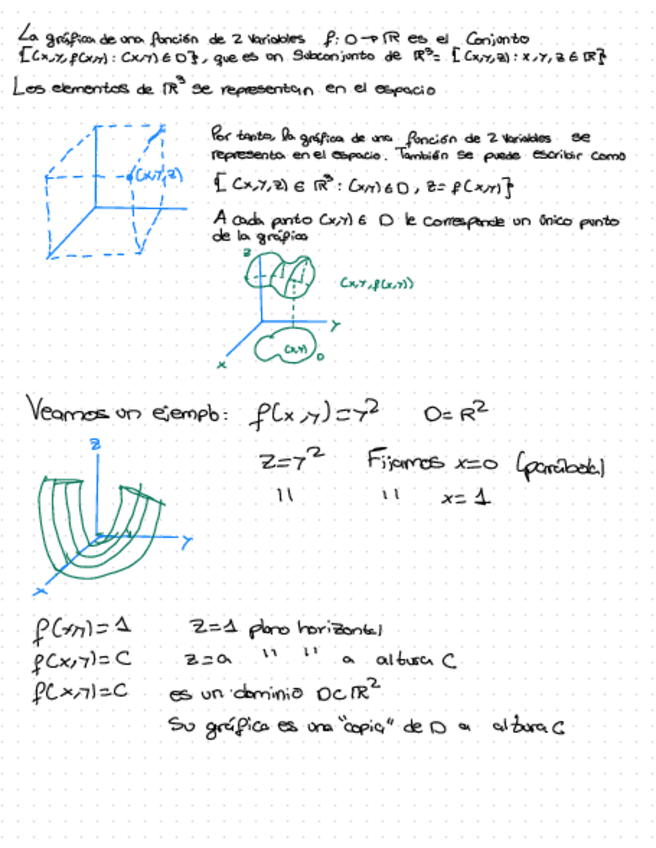 La gráfica de una función de 2 variables f: D→ℝ es el Conjunto
{(x,y,f(x,y)): (x,y) ∈ D}, que es un Subconjunto de ℝ³= {(x,y,z): x,y,z ∈ ℝ}
Los elementos de ℝ³ se representan en el espacio
Por tanto, la gráfica de una función de 2 variables se
representa en el espacio. También se puede escribir como
(x,y,z)
{(x,y,z) ∈ ℝ³: (x,y) ∈ D, z= f(x,y)}
A cada punto (x,y) ∈ D le corresponde un único punto
de la gráfica
z
(x,y,f(x,y))
y
(x,y) D
x
Veamos un ejemplo: f(x,y)=y² D=ℝ²
z
z=y² Fijamos x=0 (parábola)
" " x=1
y
x
f(x,y)=1 z=1 plano horizontal
f(x,y)=C z=a " " a altura C
f(x,y)=C es un dominio D⊂ℝ²
Su gráfica es una "copia" de D a altura C